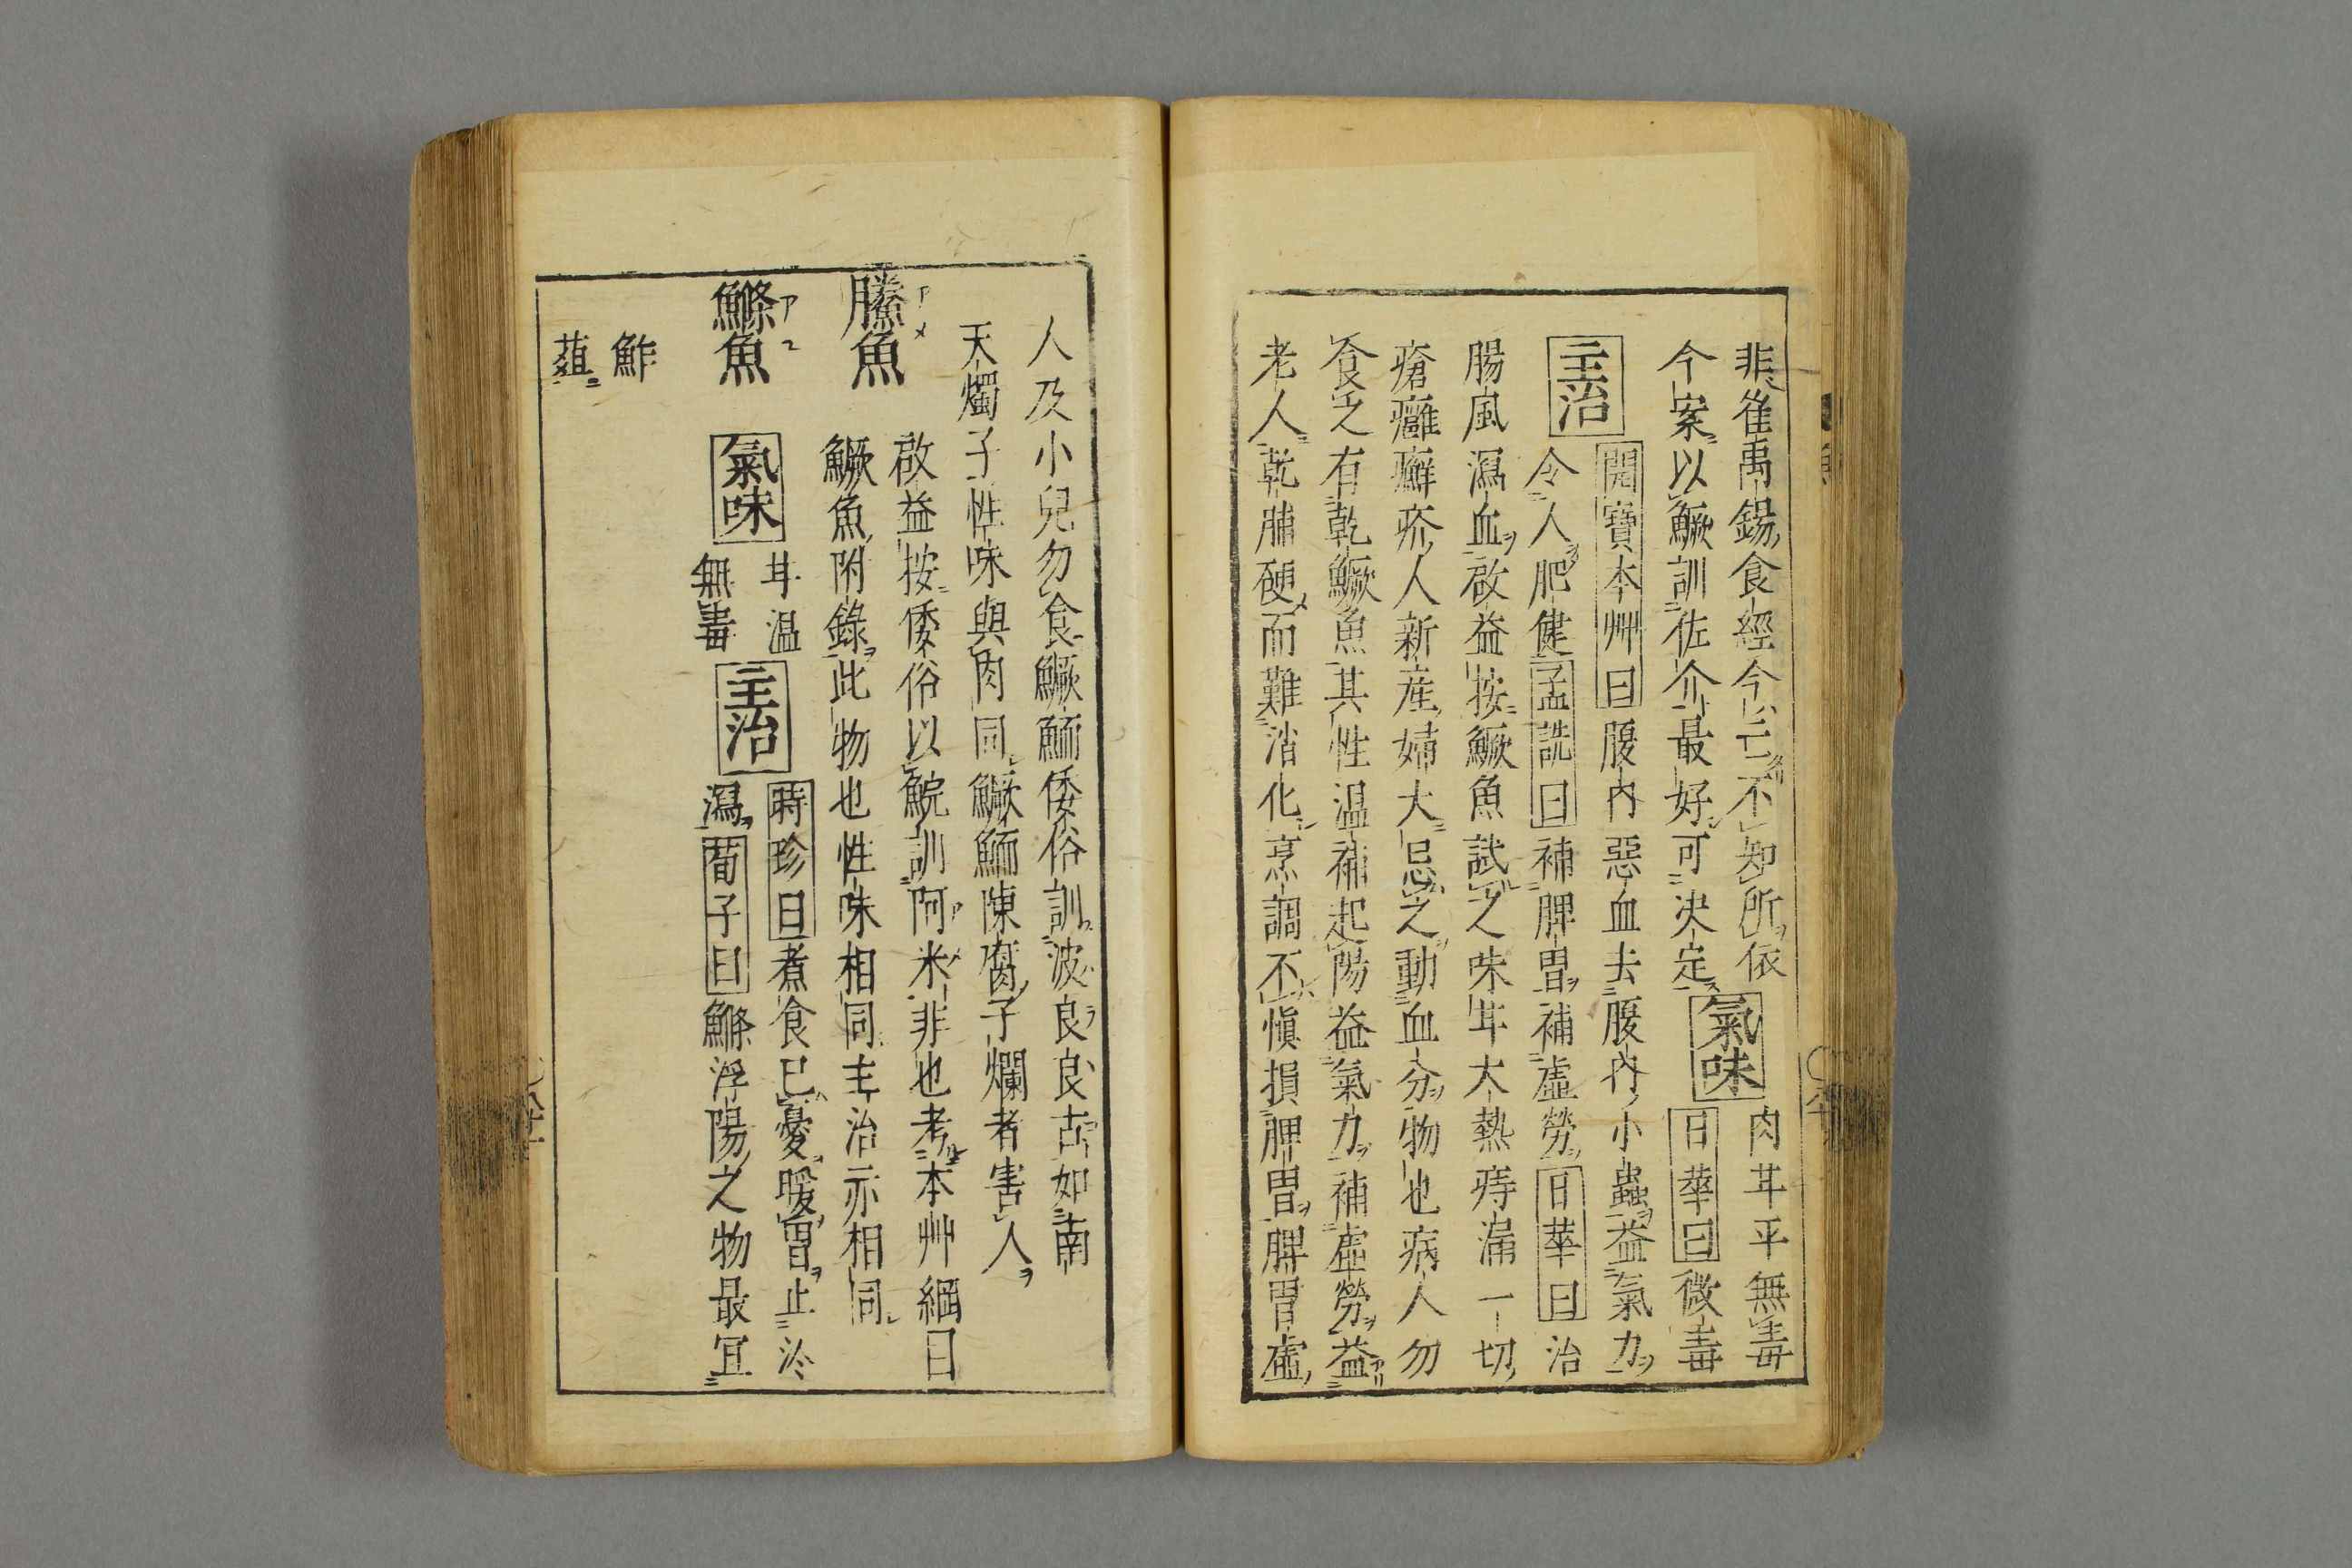 非崔禹錫食經今亡不知所依
今案以鱖訓佐介最好可決定氣味肉甘平無毒日華曰微毒
主治開寶本艸曰腹內惡血去腹內小蟲益氣力
令人肥健孟詵曰補脾胃補虛勞日華曰治
腸風瀉血啟益按鱖魚試之味甘大熱痔漏一切
瘡癰癬疥人新産婦大忌之動血分物也病人勿
食之有乾鱖魚其性温補起陽益氣力補虛勞益
老人乾脯硬而難消化烹調不慎損脾胃脾胃虛
人及小兒勿食鱖鰤倭俗訓波良良古如南
天燭子性味與肉同鱖鰤陳腐子爛者害人
䲢魚
アメ
啟益按倭俗以鯇訓阿米非也考本艸綱目
鱖魚附錄此物也性味相同主治亦相同
鰷魚
アユ
氣味甘温無毒主治時珍曰煮食已憂暖胃止冷
瀉荀子曰鰷浮陽之物最宜
鮓
葅